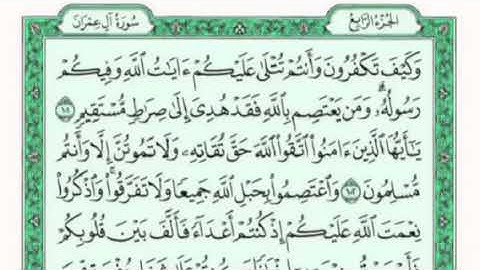 الجزء الرابع
سورة آل عمران
وَكَيْفَ تَكْفُرُونَ وَأَنتُمْ تُتْلَىٰ عَلَيْكُمْ ءَايَٰتُ ٱللَّهِ وَفِيكُمْ
رَسُولُهُۥ ۗ وَمَن يَعْتَصِم بِٱللَّهِ فَقَدْ هُدِىَ إِلَىٰ صِرَٰطٍ مُّسْتَقِيمٍ ١٠١
يَٰٓأَيُّهَا ٱلَّذِينَ ءَامَنُوا۟ ٱتَّقُوا۟ ٱللَّهَ حَقَّ تُقَاتِهِۦ وَلَا تَمُوتُنَّ إِلَّا وَأَنتُم
مُّسْلِمُونَ ١٠٢ وَٱعْتَصِمُوا۟ بِحَبْلِ ٱللَّهِ جَمِيعًا وَلَا تَفَرَّقُوا۟ ۚ وَٱذْكُرُوا۟
نِعْمَتَ ٱللَّهِ عَلَيْكُمْ إِذْ كُنتُمْ أَعْدَآءً فَأَلَّفَ بَيْنَ قُلُوبِكُمْ